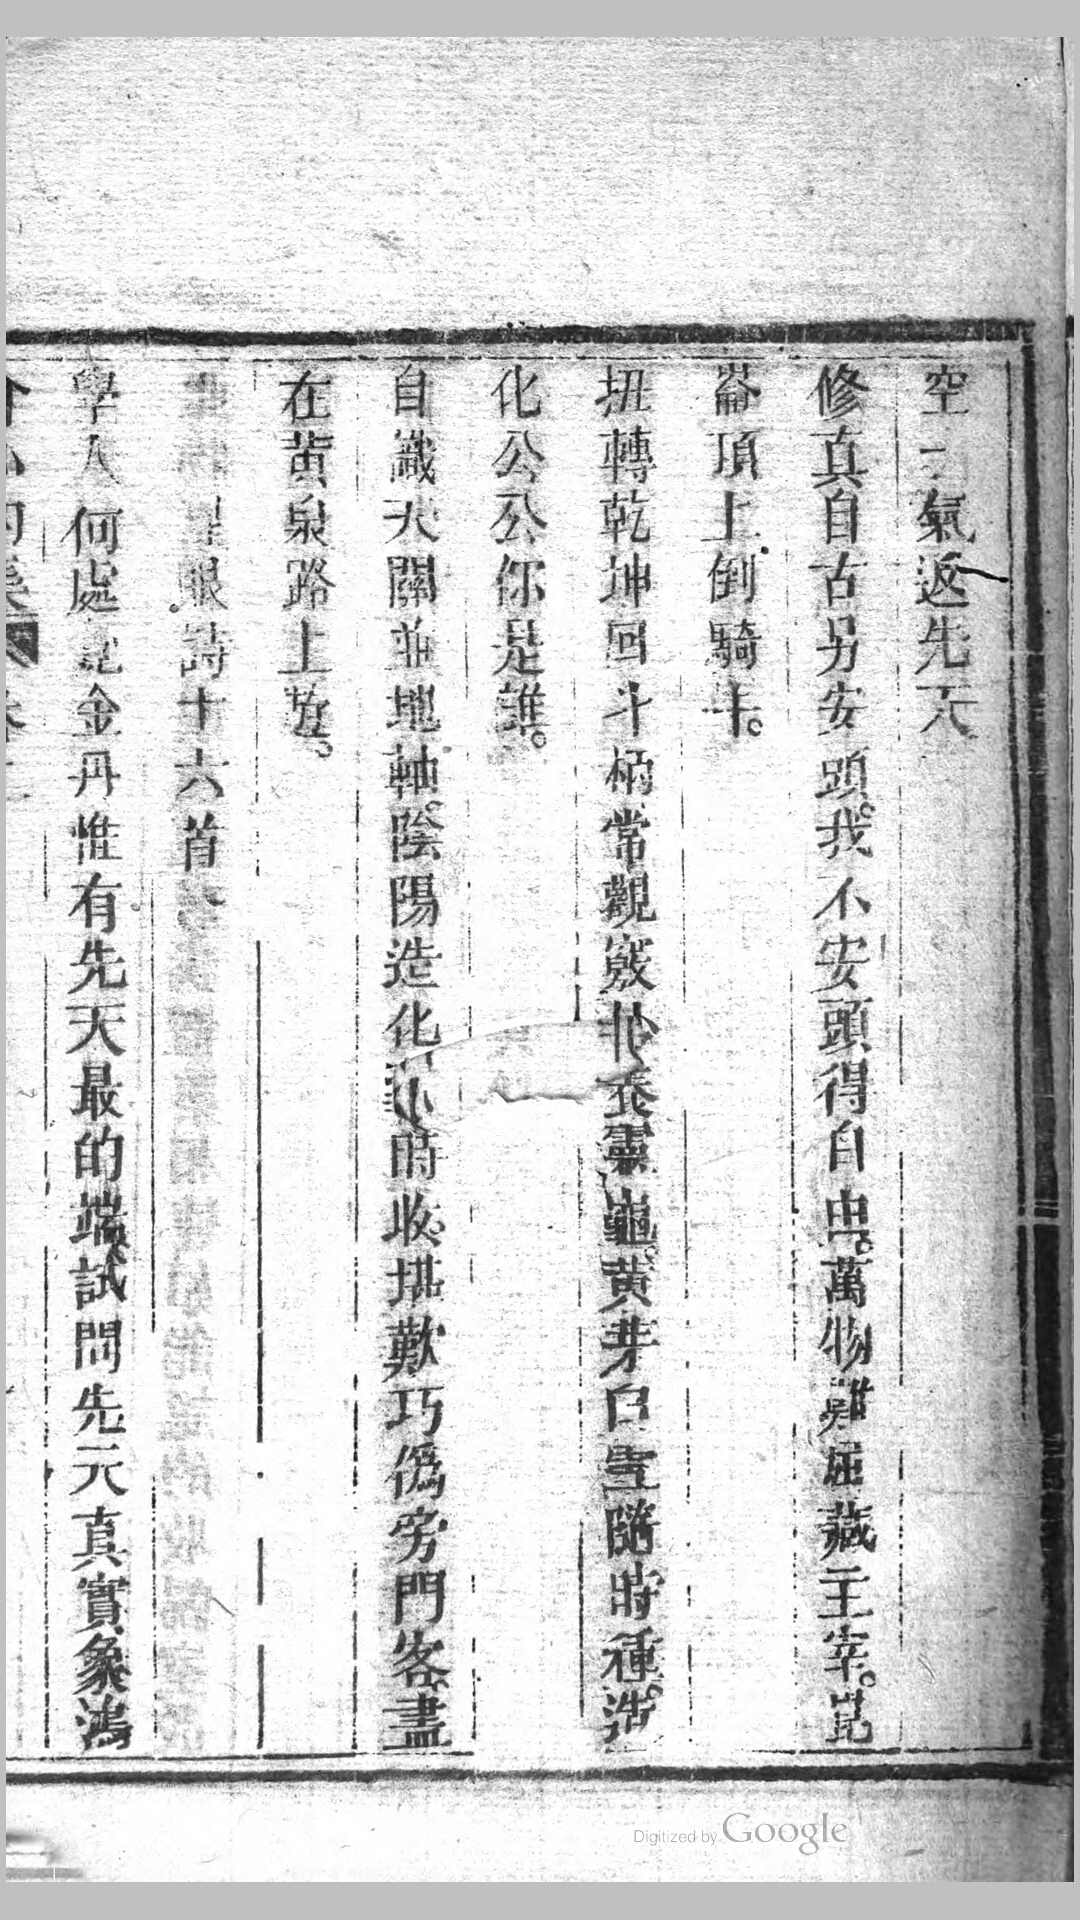 空一氣返先天
修真自古另安頭。我不安頭得自由。萬物難屈藏主宰。崑
崙頂上倒騎牛。
扭轉乾坤回斗柄常觀竅妙養靈龜。黃芽白雪隨時種。造
化公公你是誰。
自織天關並地軸。陰陽造化時收。堪歎巧僞旁門客。盡
在黃泉路上遊。
眼詩十六首
學人何處覓金丹惟有先天最的端試問先天真實象鴻
Digitized by Google